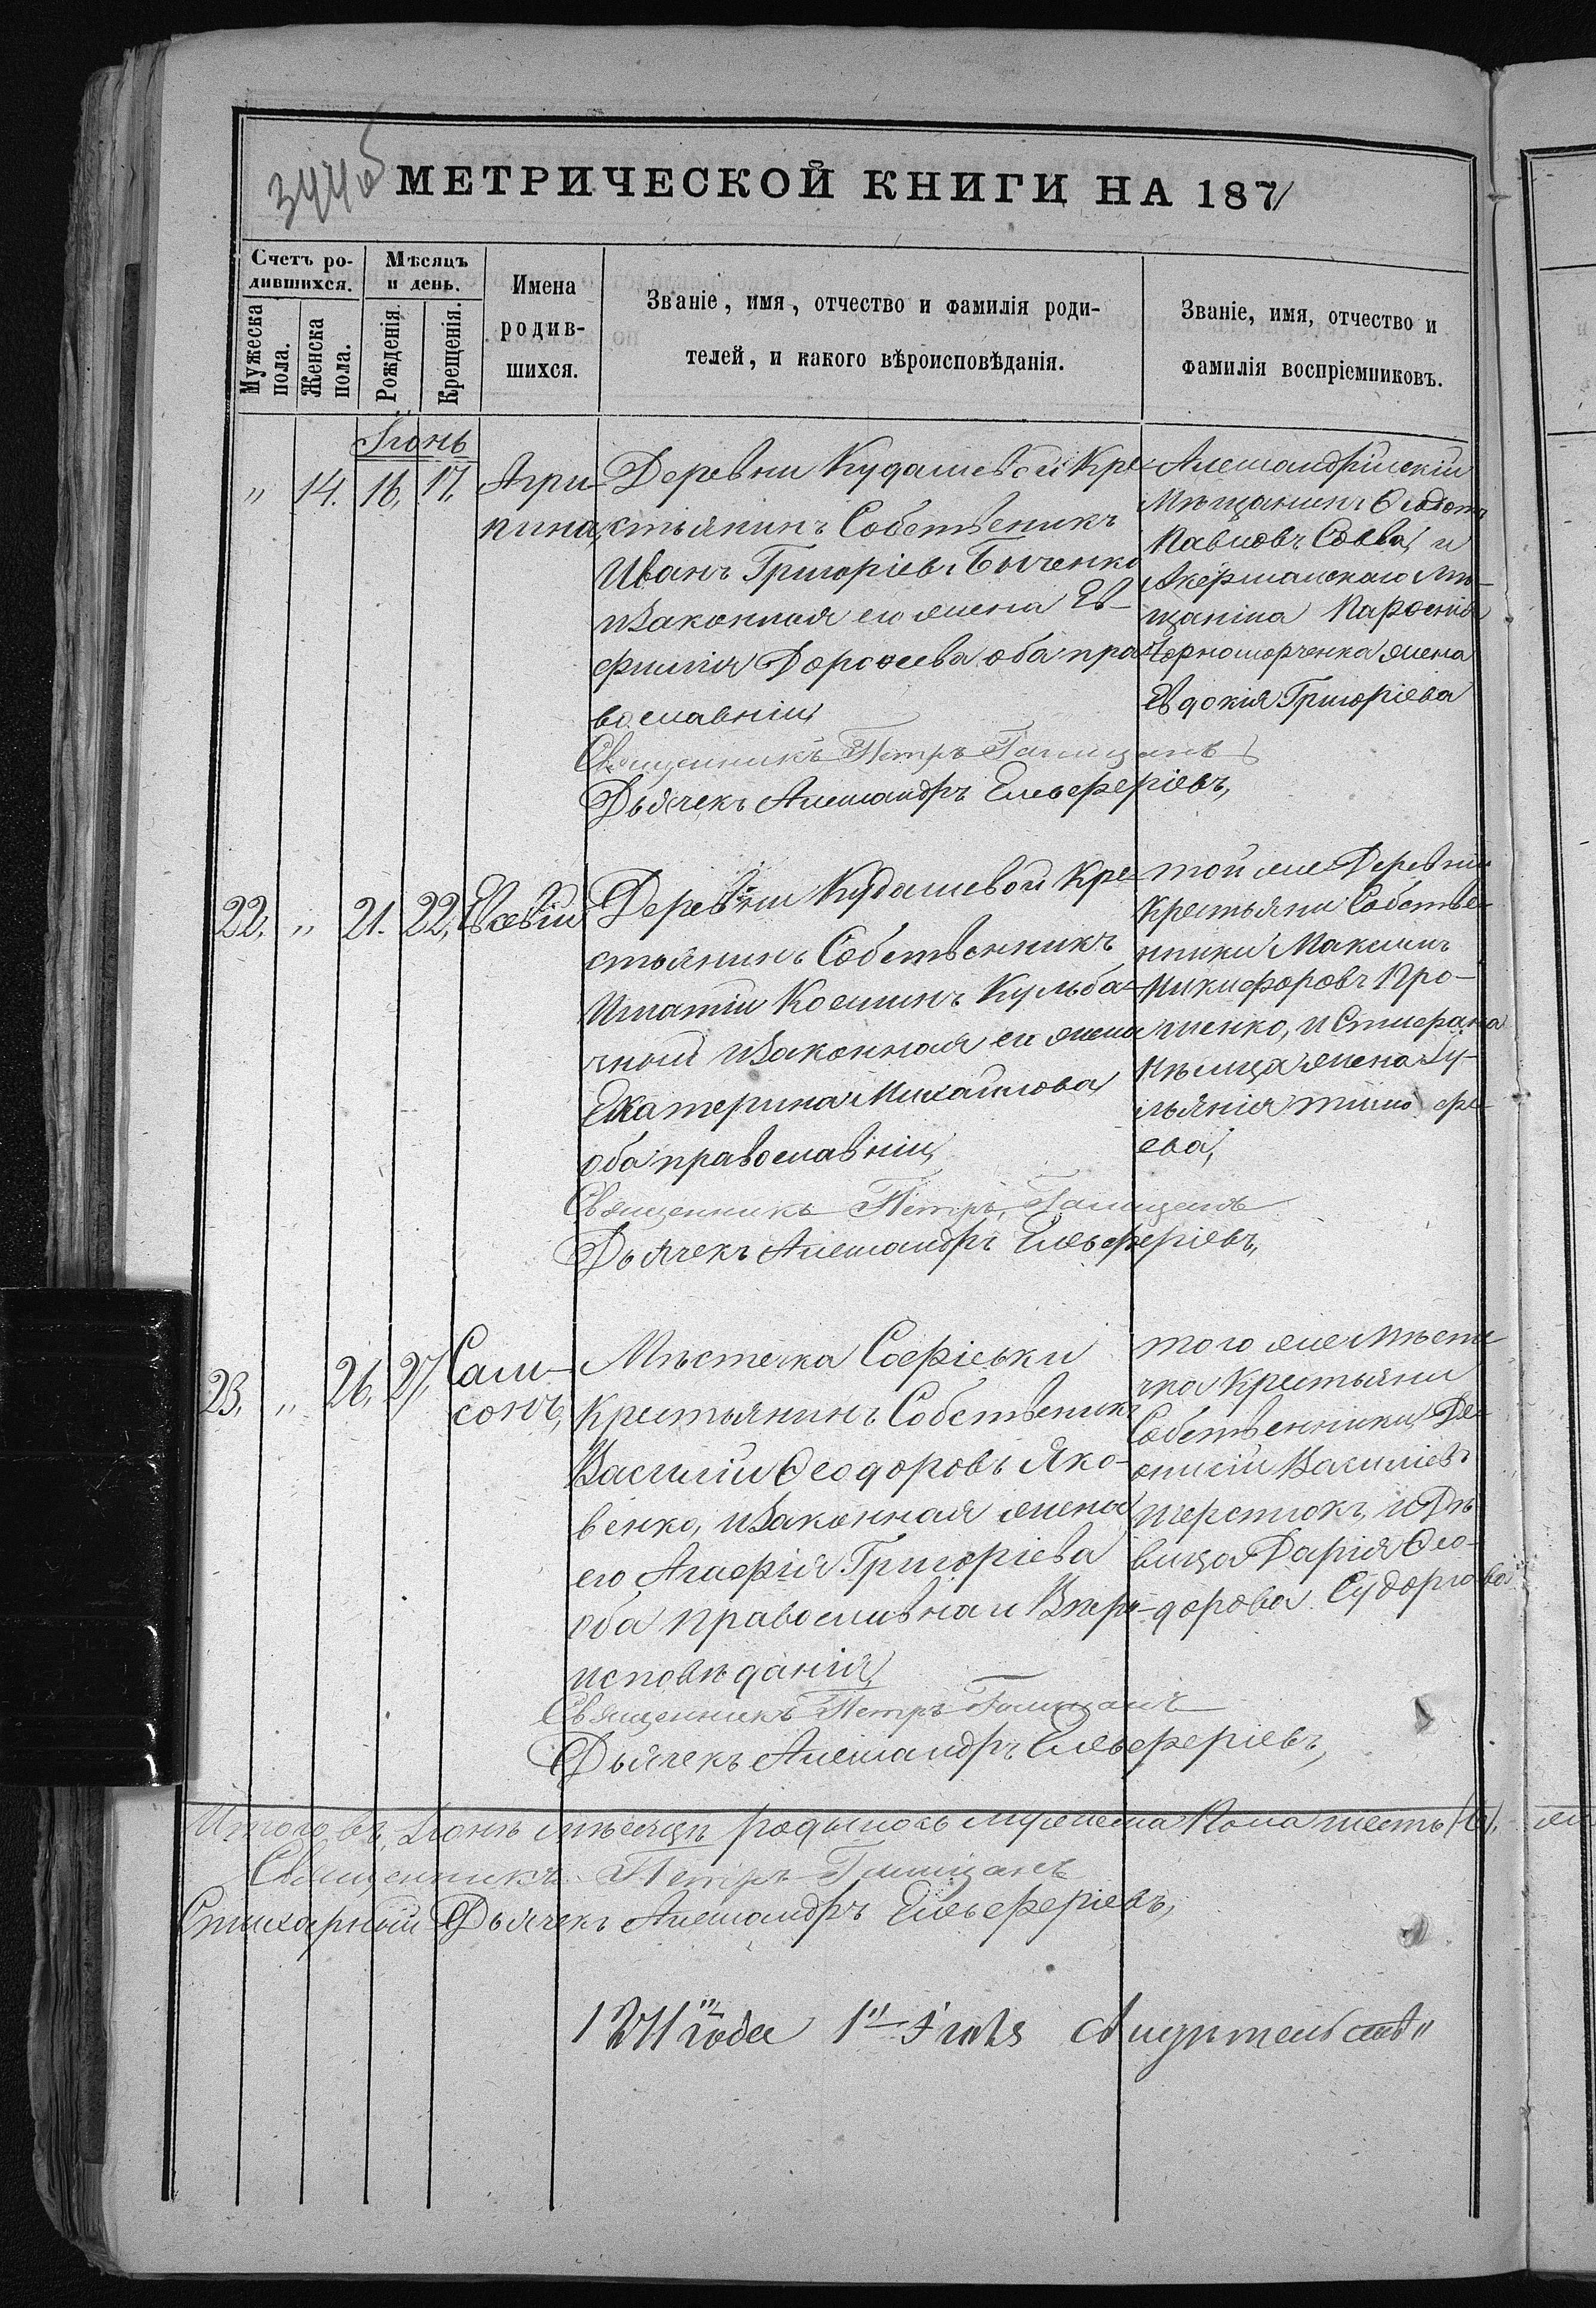 344об
МЕТРИЧЕСКОЙ КНИГИ НА 1871
Счетъ ро-
дившихся.
Мужеска
пола.
Женска
пола.
Мѣсяцъ
и день.
Рожденія.
Крещенія.
Имена
родив-
шихся.
Званіе, имя, отчество и фамилія роди-
телей, и какого вѣроисповѣданія.
Званіе, имя, отчество и
фамилія воспріемниковъ.
Іюнь
" 14. 16. 17.
Агри-
пина,
Деревни Кудашевой Кре-
стьянинъ Собственикъ
Иванъ Григоріевъ Быченко
изаконная его жена Ев-
фимія Дороѳеева оба пра-
вославніи,
Александрійскій
Мѣщанинъ Ѳеодотъ
Павловъ Савва, и
Акерманскаго мѣ-
щанина Парѳенія
Чорноморченка жена
Евдокія Григоріева
Священникъ Петръ Галицанъ
Дьячекъ Александръ Ельеферіевъ,
22. " 21. 22.
Евсевій
Деревни Кудашевой Кре-
стьянинъ Собственникъ
Игнатій Косминъ Кульба-
чный изаконная его жена
Екатерина Михайлова
оба православніи,
той же Деревни
Крестьяни Собстве-
нники Максимъ
Никифоровъ Про-
женко, и Стефана
жена Іу-
льянія Тимофе-
ева,
Священникъ Петръ Галицанъ
Дьячекъ Александръ Ельеферіевъ,
23. " 26. 27.
Сам-
сонъ,
Мѣстечка Софіевки
Крестьянинъ Собственикъ
Василій Ѳеодоровъ Яко-
венко, изаконная жена
его Агафія Григоріева
оба православнаго Вѣро-
исповѣданія,
того же Мѣсте-
чка Крестьяни
Собственники, Ді-
онисій Василіевъ
Шерстюкъ, и Дѣ-
вица Дарія Ѳео-
дорова Судоргова
Священникъ Петръ Галицанъ
Дьячекъ Александръ Ельеферіевъ,
Итого въ Іюнѣ мѣсяцѣ родилось мужеска Пола шесть (6),
Священникъ Петръ Галицанъ
Стихарный Дьячекъ Александръ Ельеферіевъ,
1871 года 1 Іюля свидѣтельств